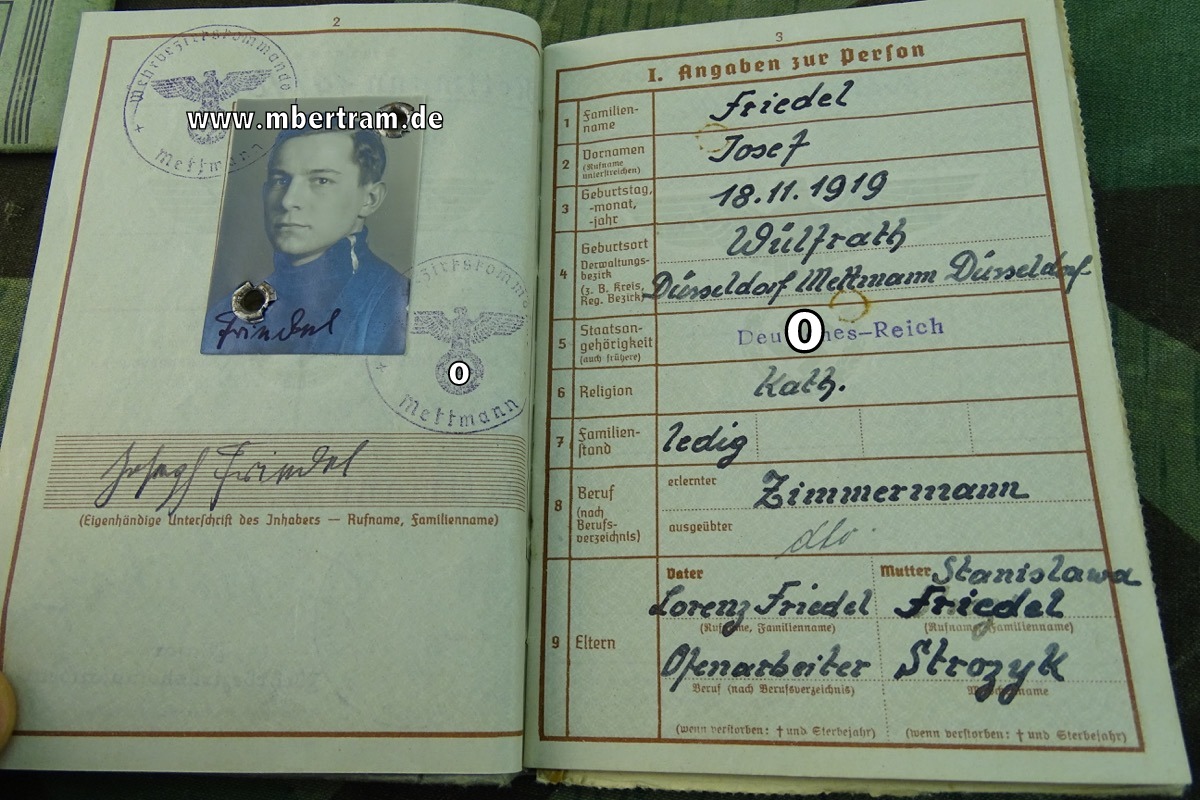 2
Wehrbezirkskommando
Mettmann
www.mbertram.de
Friedel
Mettmann
Josef Friedel
(Eigenhändige Unterschrift des Inhabers — Rufname, Familienname)
3
I. Angaben zur Person
1 Familien-
name
Friedel
2 Vornamen
(Rufname
unterstreichen)
Josef
3 Geburtstag,
-monat,
-jahr
18.11.1919
4 Geburtsort
Verwaltungs-
bezirk
(z. B. Kreis,
Reg. Bezirk)
Wülfrath
Düsseldorf Mettmann Düsseldorf
5 Staatsan-
gehörigkeit
(auch frühere)
Deutsches-Reich
6 Religion
Kath.
7 Familien-
stand
ledig
8 Beruf
(nach
Berufs-
verzeichnis)
erlernter
Zimmermann
ausgeübter
dto.
9 Eltern
Vater
Lorenz Friedel
(Rufname, Familienname)
Ofenarbeiter
Beruf (nach Berufsverzeichnis)
(wenn verstorben: † und Sterbejahr)
Mutter Stanislawa
Friedel
(Rufname, Familienname)
Strozyk
Mädchenname
(wenn verstorben: † und Sterbejahr)